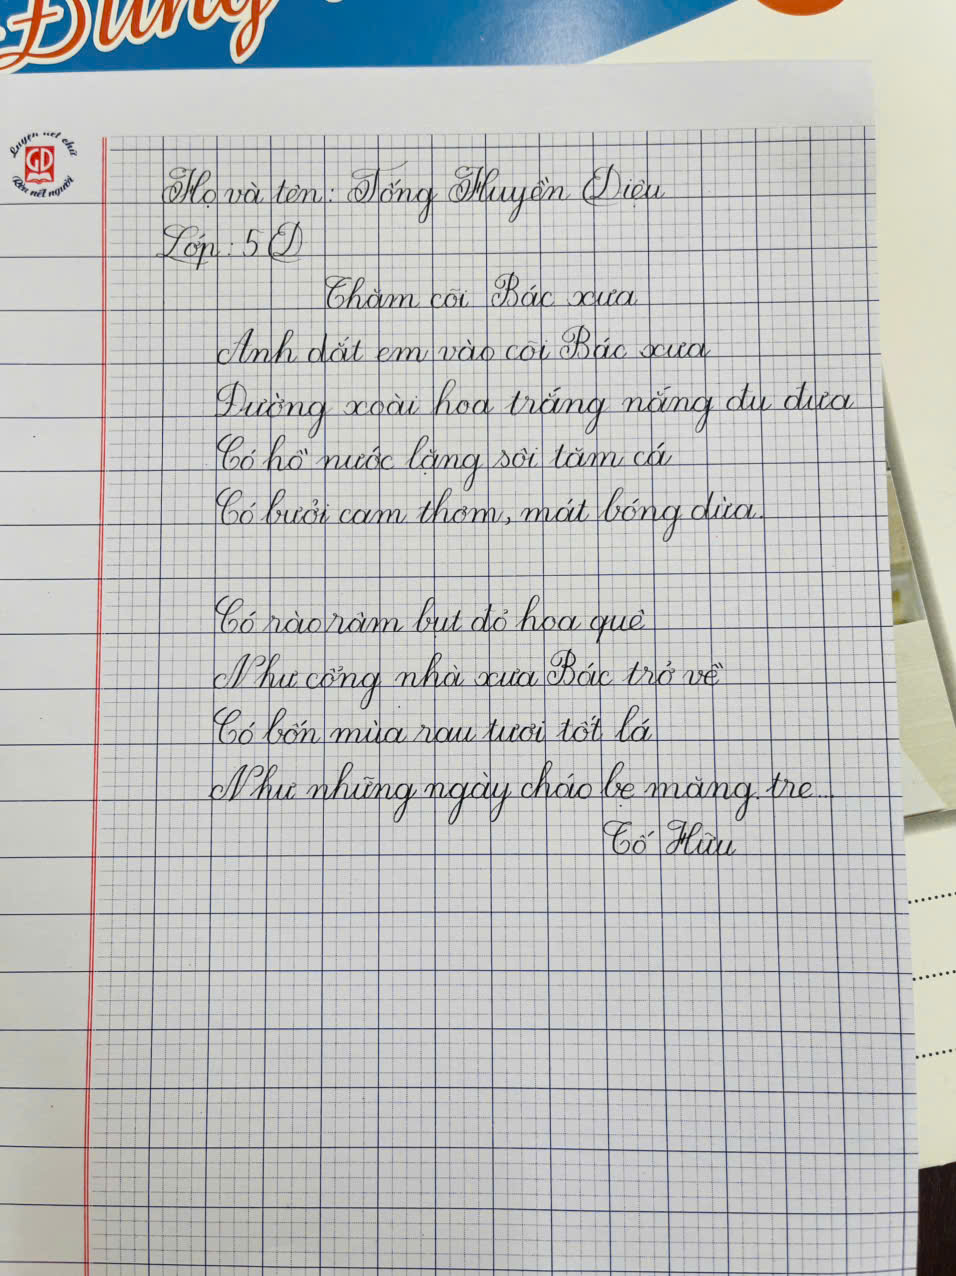 Đúng
Luyện nét chữ
GD
Rèn nết người
Họ và tên: Tống Huyền Diệu
Lớp: 5D
Thăm cõi Bác xưa
Anh dắt em vào cõi Bác xưa
Đường xoài hoa trắng nắng đu đưa
Có hồ nước lặng sôi tăm cá
Có bưởi cam thơm, mát bóng dừa.
Có rào râm bụt đỏ hoa quê
Như cổng nhà xưa Bác trở về
Có bốn mùa rau tươi tốt lá
Như những ngày cháo bẹ măng tre...
Tố Hữu